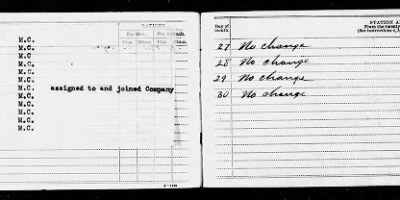 M.C.
M.C.
M.C.
M.C.
M.C.
M.C.
M.C. assigned to and joined Company
M.C.
M.C.
M.C.
M.C.
M.C.
RATIONS
Day of month
STATION A
27 No change
28 No change
29 No change
30 No change